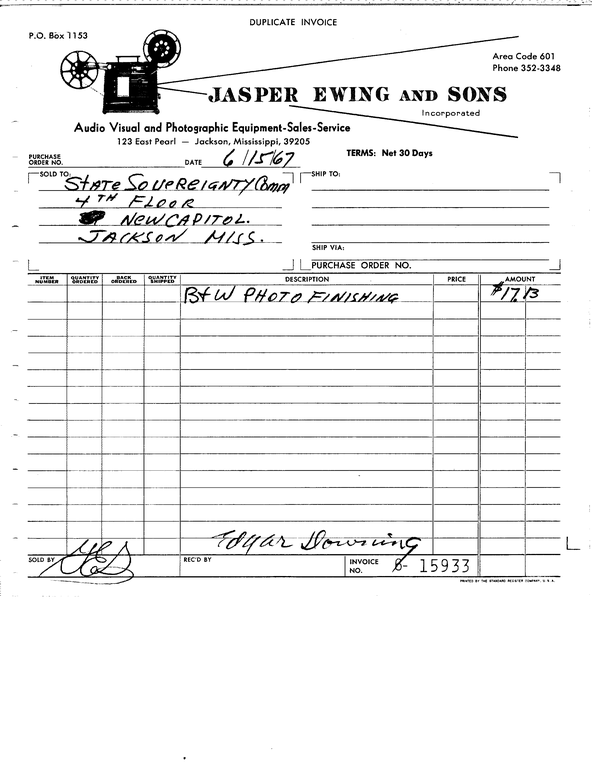 DUPLICATE INVOICE
P.O. Box 1153
Area Code 601
Phone 352-3348
JASPER EWING AND SONS
Incorporated
Audio Visual and Photographic Equipment-Sales-Service
123 East Pearl — Jackson, Mississippi, 39205
TERMS: Net 30 Days
PURCHASE ORDER NO. DATE 6/15/67
SOLD TO: STATE SOVEREIGNTY Comm
4TH FLOOR
NEW CAPITOL.
JACKSON MISS.
SHIP TO:
SHIP VIA:
PURCHASE ORDER NO.
ITEM NUMBER QUANTITY ORDERED BACK ORDERED QUANTITY SHIPPED DESCRIPTION PRICE AMOUNT
B+W PHOTO FINISHING $17.13
Edgar Downing
SOLD BY REC'D BY INVOICE NO. 15933
PRINTED BY THE STANDARD REGISTER COMPANY, U.S.A.